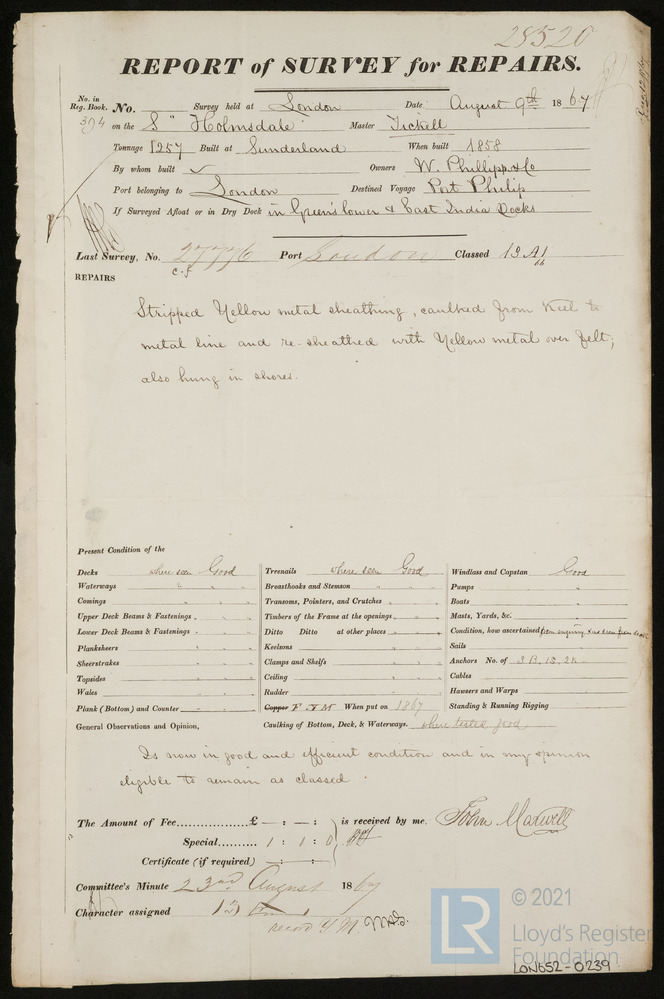 28520
REPORT of SURVEY for REPAIRS.
No. in Reg. Book. No. Survey held at London Date August 9th 1867
394 on the S" Holmsdale Master Tickell
Tonnage 1257 Built at Sunderland When built 1858
By whom built Owners W. Phillipps & Co
Port belonging to London Destined Voyage Port Philip
If Surveyed Afloat or in Dry Dock in Green's lower & East India Docks
Last Survey, No. 27776 Port London Classed 13 A1
c.f 66
REPAIRS
Stripped Yellow metal sheathing, caulked from Keel to
metal line and re-sheathed with Yellow metal over felt;
also hung in shores.
Present Condition of the
Decks where seen Good
Waterways "
Comings
Upper Deck Beams & Fastenings
Lower Deck Beams & Fastenings
Planksheers
Sheerstrakes
Topsides
Wales
Plank (Bottom) and Counter
General Observations and Opinion,
Treenails where seen Good
Breasthooks and Stemson
Transoms, Pointers, and Crutches
Timbers of the Frame at the openings
Ditto Ditto at other places
Keelsons
Clamps and Shelfs
Ceiling
Rudder
Copper F Y M When put on 1867
Caulking of Bottom, Deck, & Waterways. where tested good
Windlass and Capstan Good
Pumps
Boats
Masts, Yards, &c.
Condition, how ascertained from enquiry & as seen from deck
Sails
Anchors No. of 3 B, 1S, 2K
Cables
Hawsers and Warps
Standing & Running Rigging
Is now in good and efficient condition and in my opinion
eligible to remain as classed.
The Amount of Fee £ — : — : is received by me, John Maxwell
Special 1 : 1 : 0
Certificate (if required) — : — :
Committee's Minute 23rd August 1867
Character assigned 13
record YM
© 2021
LR Lloyd's Register
Foundation
LON652-0239